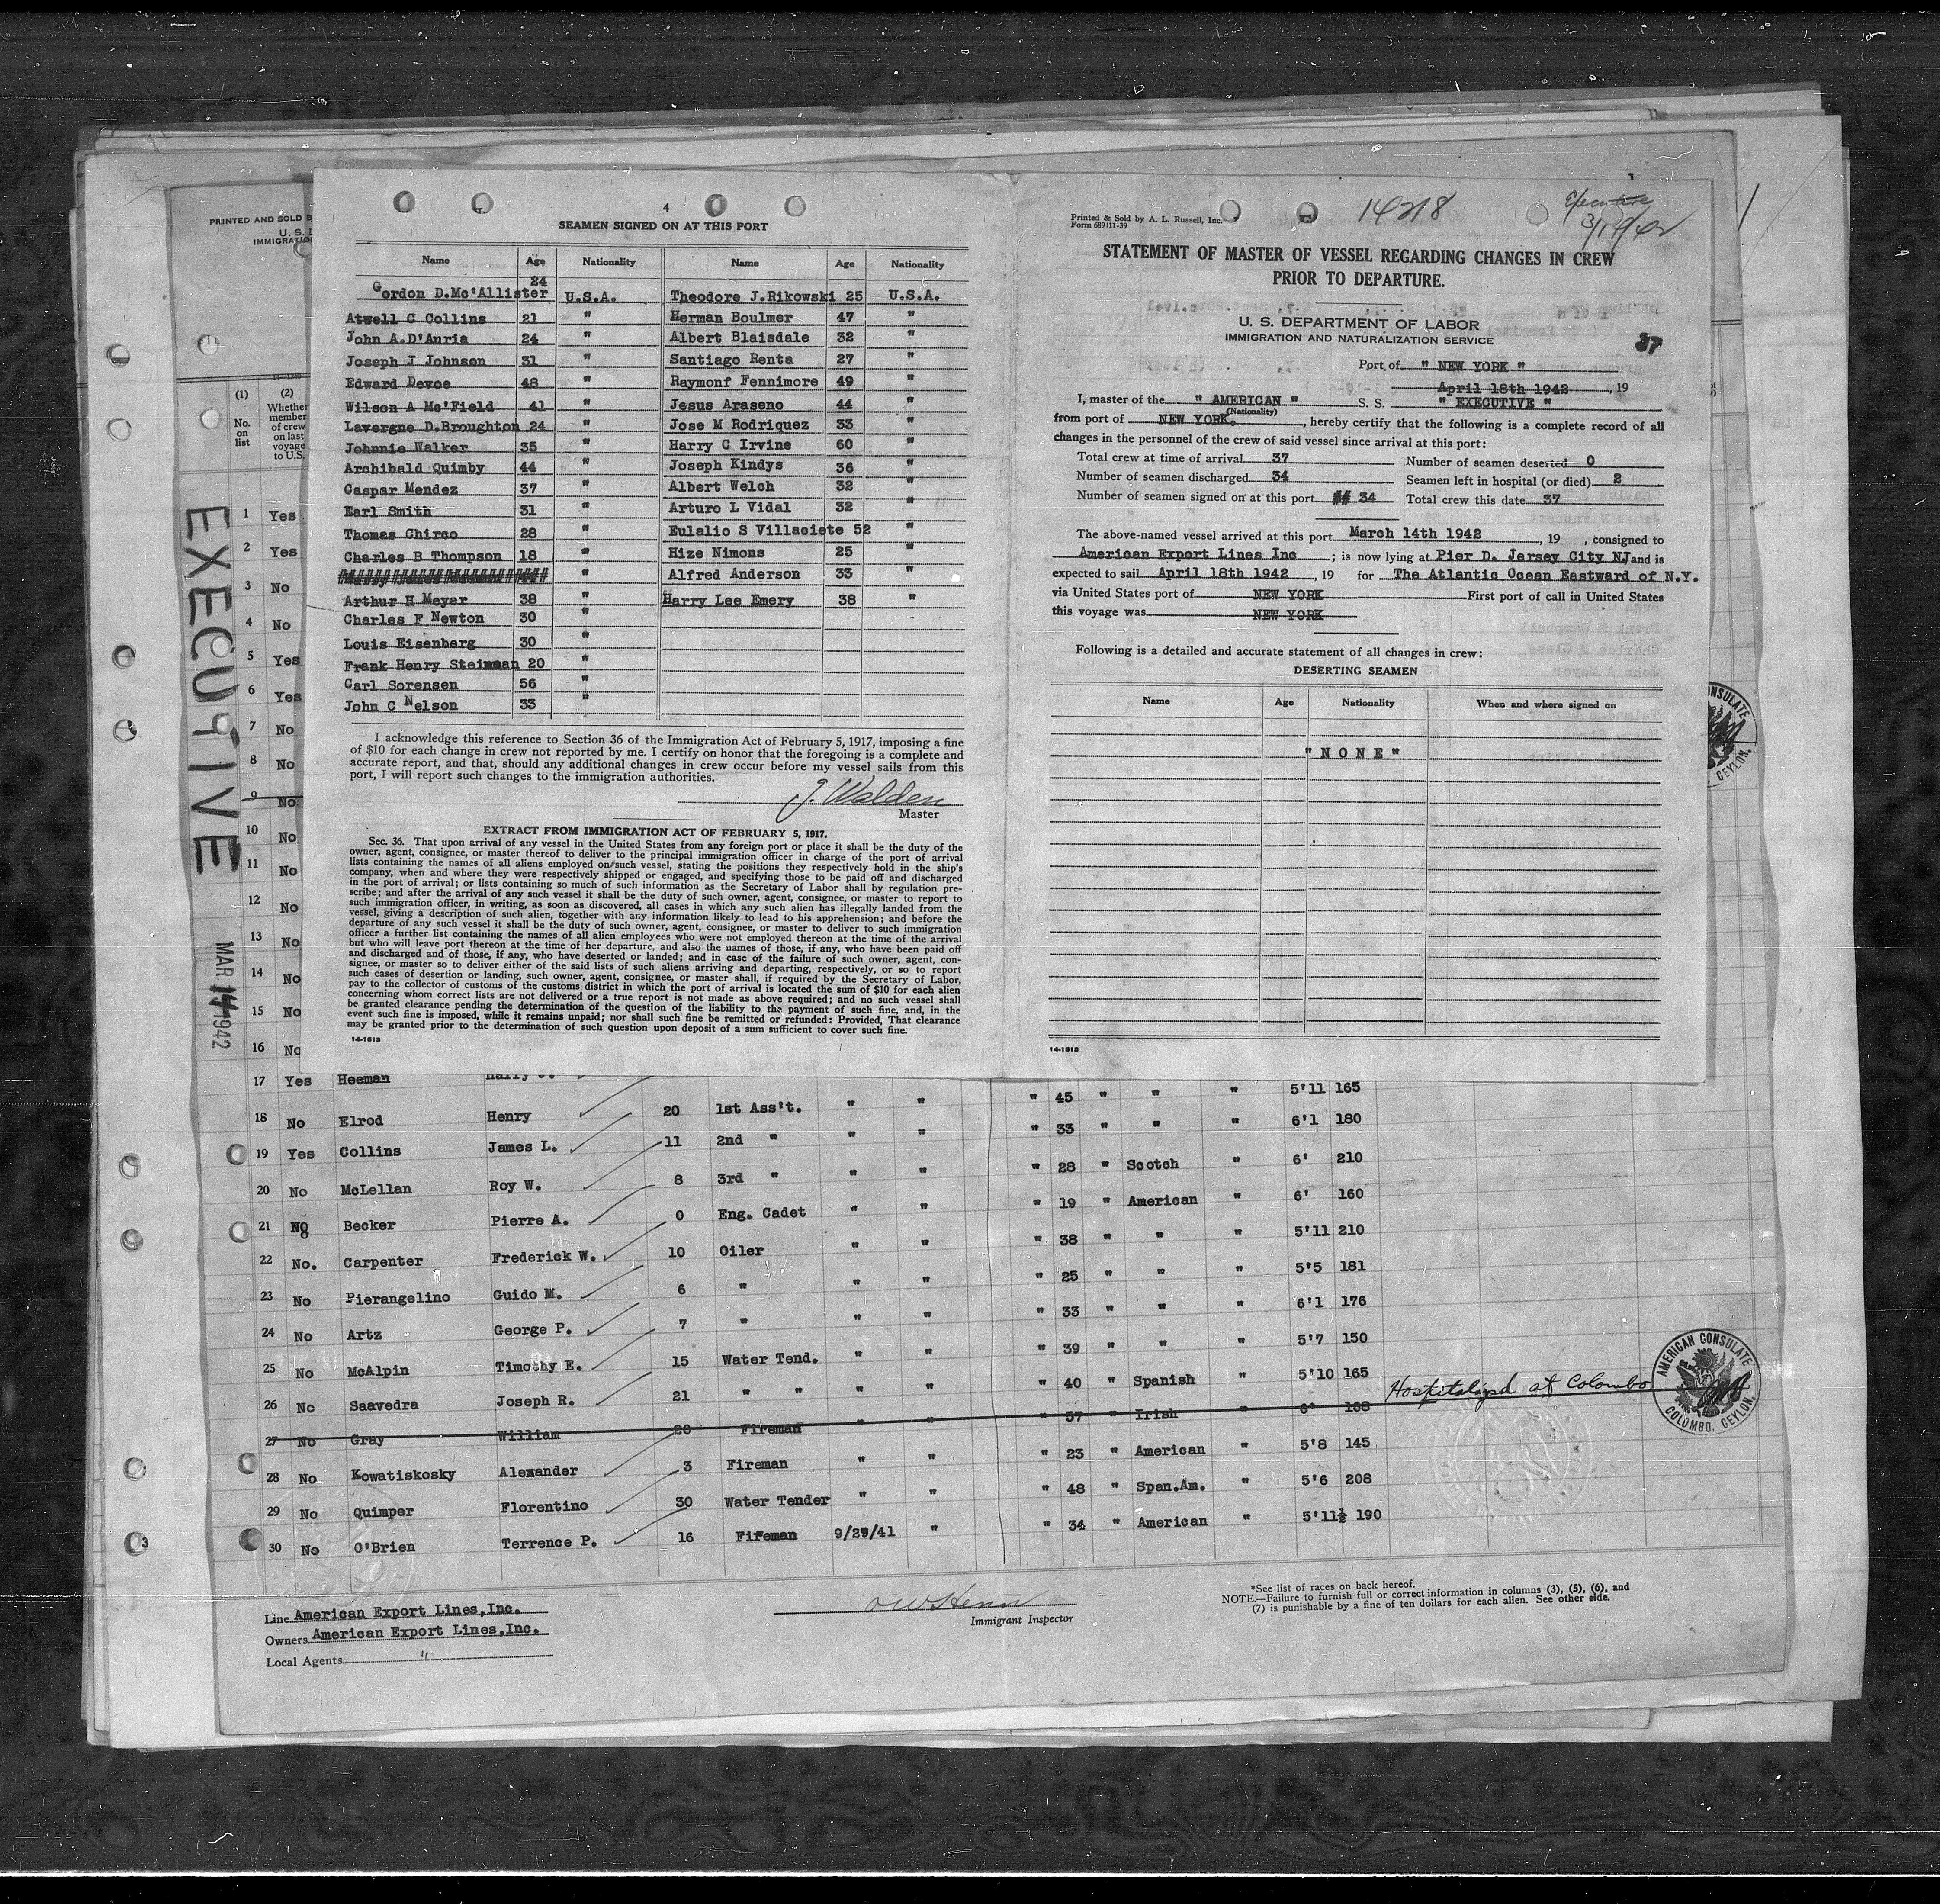 PRINTED AND SOLD B
U. S. D
IMMIGRATIO
(1) (2)
No. on list
Whether member of crew on last voyage to U.S.
EXECUTIVE
MAR 14 1942
4
SEAMEN SIGNED ON AT THIS PORT
Name Age Nationality Name Age Nationality
Gordon D.Mc'Allister 24 U.S.A. Theodore J.Rikowski 25 U.S.A.
Atwell C Collins 21 " Herman Boulmer 47 "
John A.D'Anria 24 " Albert Blaisdale 32 "
Joseph J Johnson 31 " Santiago Renta 27 "
Edward Devoe 48 " Raymonf Fennimore 49 "
Wilson A Mc'Field 41 " Jesus Araseno 44 "
Lavergne D.Broughton 24 " Jose M Rodriquez 33 "
Johnnie Walker 35 " Harry C Irvine 60 "
Archibald Quimby 44 " Joseph Kindys 36 "
Caspar Mendez 37 " Albert Welch 32 "
Earl Smith 31 " Arturo L Vidal 32 "
Thomas Chirco 28 " Eulalio S Villaciete 52 "
Charles B Thompson 18 " Hize Nimons 25 "
" Alfred Anderson 33 "
Arthur H Meyer 38 " Harry Lee Emery 38 "
Charles F Newton 30 "
Louis Eisenberg 30 "
Frank Henry Steinman 20 "
Carl Sorensen 56 "
John C Nelson 33 "
I acknowledge this reference to Section 36 of the Immigration Act of February 5, 1917, imposing a fine
of $10 for each change in crew not reported by me. I certify on honor that the foregoing is a complete and
accurate report, and that, should any additional changes in crew occur before my vessel sails from this
port, I will report such changes to the immigration authorities.
J. Walden
Master
EXTRACT FROM IMMIGRATION ACT OF FEBRUARY 5, 1917.
Sec. 36. That upon arrival of any vessel in the United States from any foreign port or place it shall be the duty of the
owner, agent, consignee, or master thereof to deliver to the principal immigration officer in charge of the port of arrival
lists containing the names of all aliens employed on such vessel, stating the positions they respectively hold in the ship's
company, when and where they were respectively shipped or engaged, and specifying those to be paid off and discharged
in the port of arrival; or lists containing so much of such information as the Secretary of Labor shall by regulation pre-
scribe; and after the arrival of any such vessel it shall be the duty of such owner, agent, consignee, or master to report to
such immigration officer, in writing, as soon as discovered, all cases in which any such alien has illegally landed from the
vessel, giving a description of such alien, together with any information likely to lead to his apprehension; and before the
departure of any such vessel it shall be the duty of such owner, agent, consignee, or master to deliver to such immigration
officer a further list containing the names of all alien employees who were not employed thereon at the time of the arrival
but who will leave port thereon at the time of her departure, and also the names of those, if any, who have been paid off
and discharged and of those, if any, who have deserted or landed; and in case of the failure of such owner, agent, con-
signee, or master so to deliver either of the said lists of such aliens arriving and departing, respectively, or so to report
such cases of desertion or landing, such owner, agent, consignee, or master shall, if required by the Secretary of Labor,
pay to the collector of customs of the customs district in which the port of arrival is located the sum of $10 for each alien
concerning whom correct lists are not delivered or a true report is not made as above required; and no such vessel shall
be granted clearance pending the determination of the question of the liability to the payment of such fine, and, in the
event such fine is imposed, while it remains unpaid; nor shall such fine be remitted or refunded: Provided, That clearance
may be granted prior to the determination of such question upon deposit of a sum sufficient to cover such fine.
14-1613
Printed & Sold by A. L. Russell, Inc.
Form 689 11-39
14218
Executive
STATEMENT OF MASTER OF VESSEL REGARDING CHANGES IN CREW
PRIOR TO DEPARTURE.
U. S. DEPARTMENT OF LABOR
IMMIGRATION AND NATURALIZATION SERVICE
37
Port of " NEW YORK "
April 18th 1942 , 19
I, master of the " AMERICAN " S. S. " EXECUTIVE "
(Nationality)
from port of NEW YORK. , hereby certify that the following is a complete record of all
changes in the personnel of the crew of said vessel since arrival at this port:
Total crew at time of arrival 37 Number of seamen deserted 0
Number of seamen discharged 34 Seamen left in hospital (or died) 2
Number of seamen signed on at this port ## 34 Total crew this date 37
The above-named vessel arrived at this port March 14th 1942 , 19 , consigned to
American Export Lines Inc ; is now lying at Pier D. Jersey City NJ and is
expected to sail April 18th 1942 , 19 for The Atlantic Ocean Eastward of N.Y.
via United States port of NEW YORK First port of call in United States
this voyage was NEW YORK
Following is a detailed and accurate statement of all changes in crew:
DESERTING SEAMEN
Name Age Nationality When and where signed on
" N O N E "
14-1613
1 Yes
2 Yes
3 No
4 No
5 Yes
6 Yes
7 No
8 No
9 No
10 No
11 No
12 No
13 No
14 No
15 No
16 No
17 Yes Heeman Harry J. " 45 " " " 5'11 165
18 No Elrod Henry 20 1st Ass't. " " " 33 " " " 6'1 180
19 Yes Collins James L. 11 2nd " " " " 28 " Scotch " 6' 210
20 No McLellan Roy W. 8 3rd " " " " 19 " American " 6' 160
21 No Becker Pierre A. 0 Eng. Cadet " " " 38 " " " 5'11 210
22 No. Carpenter Frederick W. 10 Oiler " " " 25 " " " 5'5 181
23 No Pierangelino Guido M. 6 " " " " 33 " " " 6'1 176
24 No Artz George P. 7 " " " " 39 " " " 5'7 150
25 No McAlpin Timothy E. 15 Water Tend. " " " 40 " Spanish " 5'10 165
26 No Saavedra Joseph R. 21 " " " " " 37 " Irish " 6' 168 Hospitalized at Colombo
27 No Gray William 20 Fireman " " " 23 " American " 5'8 145
28 No Kowatiskosky Alexander 3 Fireman " " " 48 " Span.Am. " 5'6 208
29 No Quimper Florentino 30 Water Tender " " " 34 " American " 5'11½ 190
30 No O'Brien Terrence P. 16 Fireman 9/29/41 "
AMERICAN CONSULATE
COLOMBO, CEYLON.
Line American Export Lines,Inc.
Owners American Export Lines,Inc.
Local Agents "
Immigrant Inspector
*See list of races on back hereof.
NOTE.—Failure to furnish full or correct information in columns (3), (5), (6), and
(7) is punishable by a fine of ten dollars for each alien. See other side.